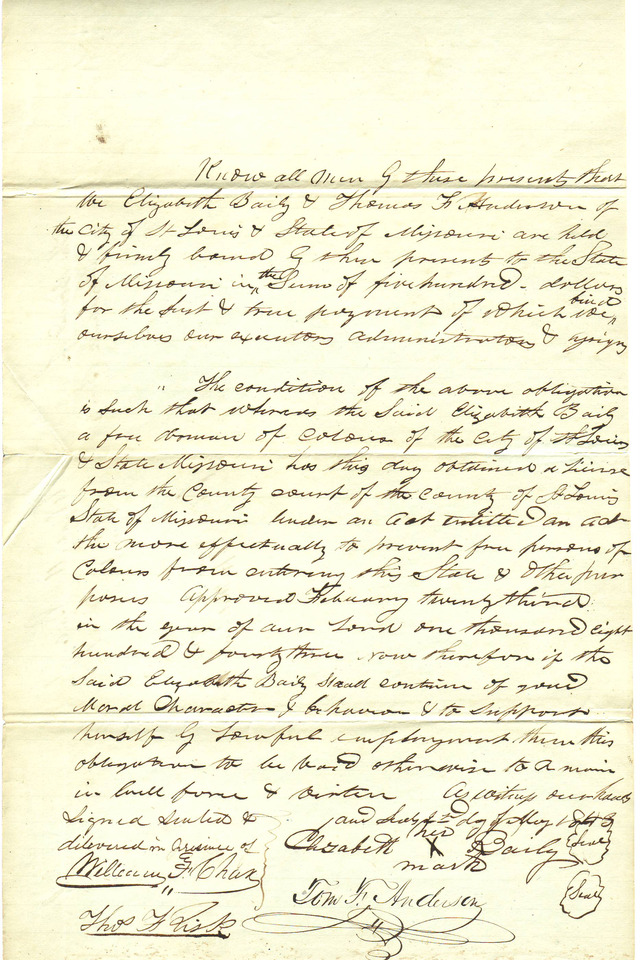 Know all men by these presents that
We Elizabeth Baily & Thomas F Anderson of
the City of St Louis & State of Missouri are held
& firmly bound by these presents to the State
of Missouri in the Sum of five hundred - dollars
for the Just & true payment of which we bind
ourselves our executors administrators & assigns
" The condition of the above obligation
is such that whereas the Said Elizabeth Baily
a free woman of Colour of the City of St Louis
& State Missouri has this day obtained a license
from the County court of the county of St Louis
State of Missouri under an Act entitled an act
the more effectually to prevent free persons of
Colour from entering this State & other pur
poses Approved February twenty third
in the year of our Lord one thousand Eight
hundred & fourty three Now therefore if the
Said Elizabeth Baily Shall continue of good
Moral Character & behavior & to Support
herself by Lawful employment then this
obligation to be void otherwise to remain
in full force & virtue As witness our hands
Signed Sealed &
delivered in presence of
William F. Chase
Thos F Risk
and Seals day of May 1843
Elizabeth her X mark Baily Seal
Tom F. Anderson Seal